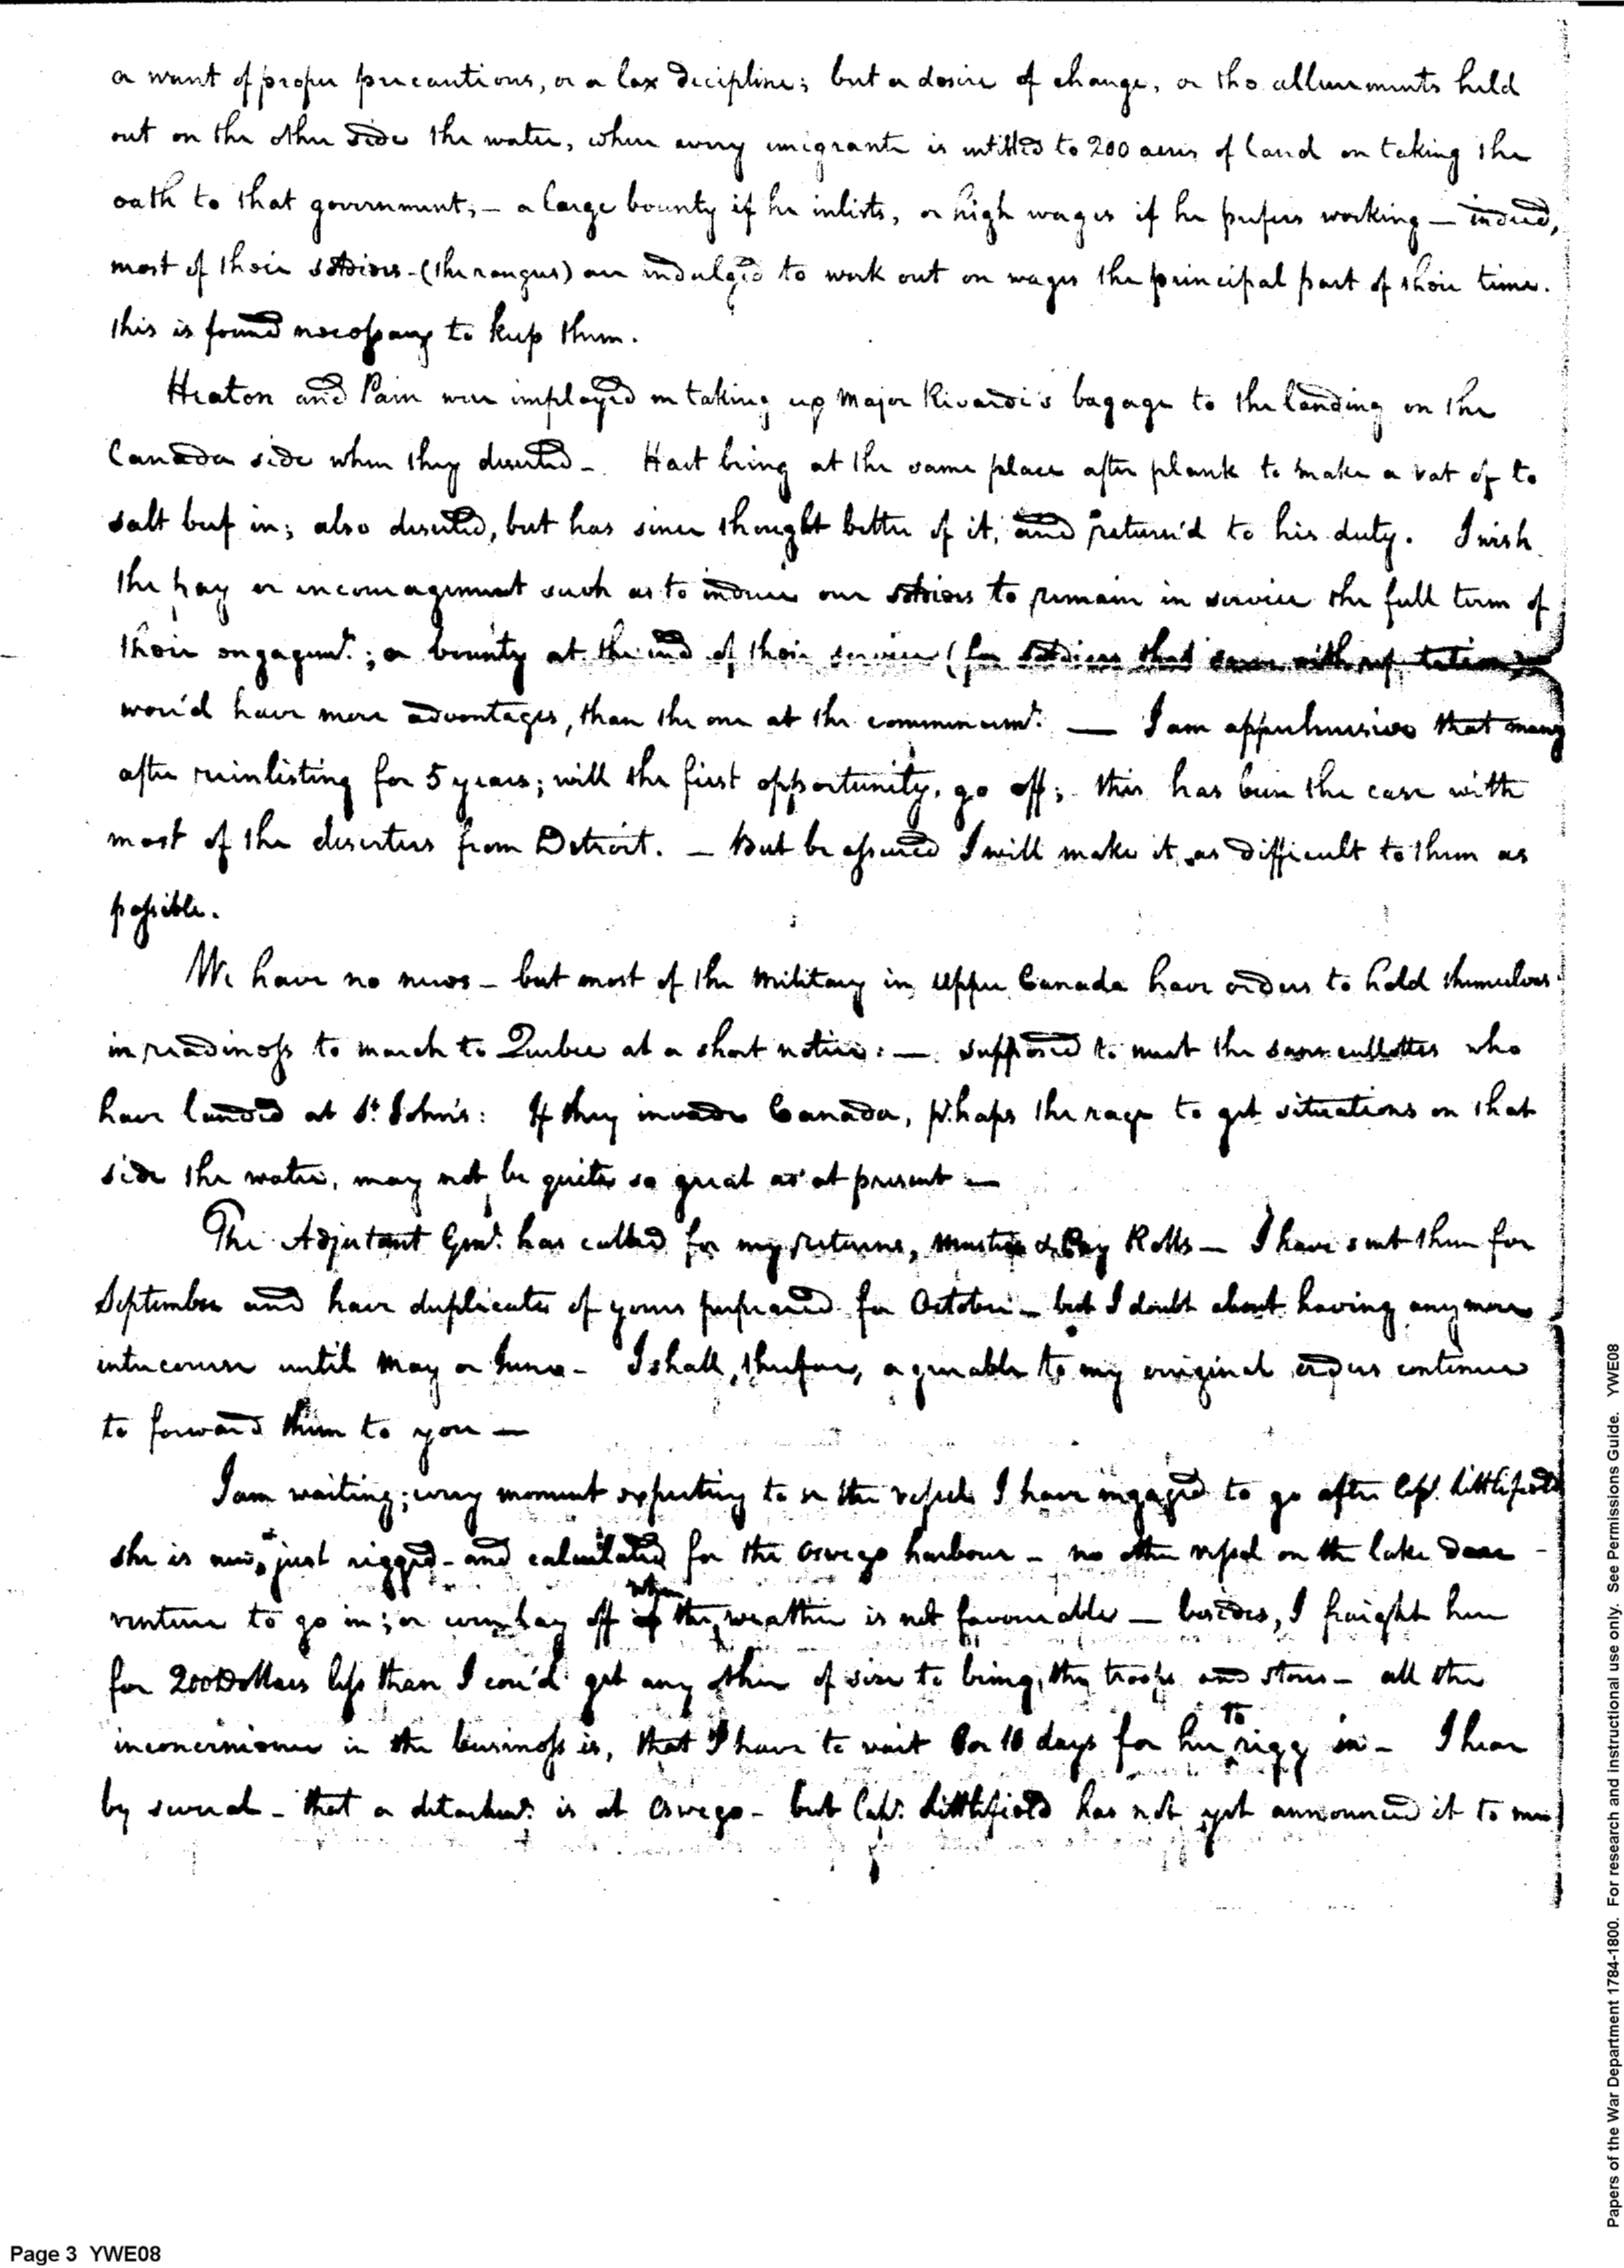 a want of proper precautions, or a lax decipline; but a desire of change, or the allurements held
out on the other side the water, where every emigrante is intitled to 200 acres of land on taking the
oath to that government; — a large bounty if he inlists, or high wages if he prefers working — indeed,
most of their soldiers - (the rangers) are indulged to work out on wages the principal part of their time.
this is found necessary to keep them.
Heaton and Pain were imployed in taking up Major Rivardi's bagage to the landing on the
Canada side when they deserted — Hart being at the same place after plank to make a vat of to
salt beef in; also deserted, but has since thought better of it, and return'd to his duty. I wish
the pay or incouragement such as to induce our soldiers to remain in service the full term of
their engagemt.; a bounty at the end of their service (for soldiers that serve with reputation)
wou'd have more advantages, than the one at the commencemt. — I am apprehensive that many
after reinlisting for 5 years; will the first opportunity, go off; this has been the case with
most of the deserters from Detroit. — But be assured I will make it as difficult to them as
possible.
We have no news — but most of the military in Upper Canada have orders to hold themselves
in readiness to march to Quebec at a short notice: — supposed to meet the sansculottes who
have landed at St. John's: If they invade Canada, p'haps the rage to get situations on that
side the water, may not be quite so great as at present —
The Adjutant Genl. has called for my returns, Muster & Pay Rolls — I have sent them for
September and have duplicates of yours prepared for October — but I doubt about having any more
intercourse until May or June — I shall, therefore, agreeable to my original orders continue
to forward them to you —
I am waiting; every moment expecting to see the vessel I have ingaged to go after Capt. Littlefield
she is new, just rigged — and calculated for the Oswego harbour — no other vessel on the lake dare
venture to go in; or even lay off when the weather is not favourable — besides, I fraight her
for 200 Dollars less than I cou'd get any other of size to bring the troops and stores — all the
inconvenience in the business is, that I have to wait 8 or 10 days for her to rigg in — I hear
by several — that a detachmt. is at Oswego — but Capt. Littlefield has not yet announced it to me
Papers of the War Department 1784-1800. For research and instructional use only. See Permissions Guide. YWE08
Page 3 YWE08